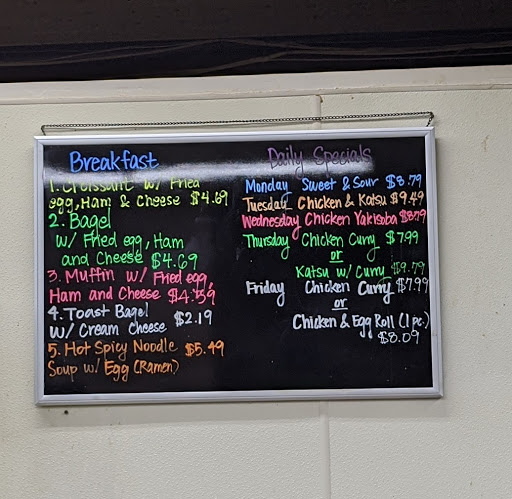 Breakfast
1. Croissant w/ Fried
egg, Ham & cheese $4.69
2. Bagel
w/ Fried egg, Ham
and Cheese $4.69
3. Muffin w/ Fried egg,
Ham and Cheese $4.59
4. Toast Bagel
w/ Cream cheese $2.19
5. Hot Spicy Noodle $5.49
Soup w/ Egg (Ramen)
Daily Specials
Monday Sweet & Sour $8.79
Tuesday Chicken & Katsu $9.49
Wednesday Chicken Yakisoba $8.79
Thursday Chicken Curry $7.99
or
Katsu w/ Curry $9.79
Friday Chicken Curry $7.99
or
Chicken & Egg Roll (1 pc.)
$8.09